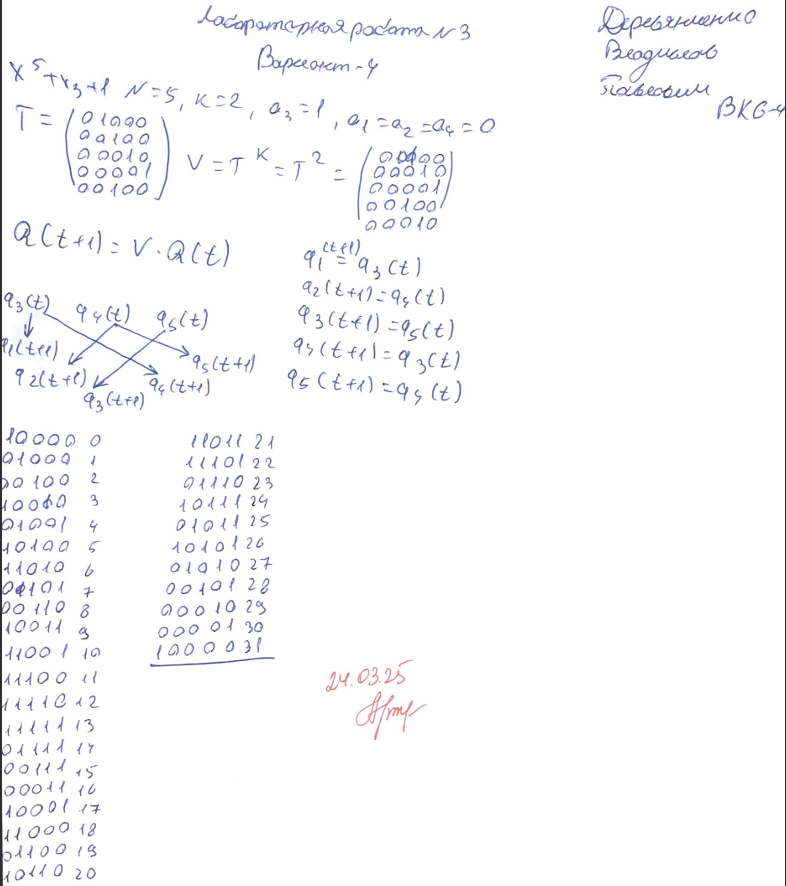 Лабораторная работа N 3
Вариант-4
Владислов
ВКБ-4
x^5+x_3+1 N=5, K=2, a_3=1, a_1=a_2=a_4=0
T = (01000
00100
00010
00001
00100)
V=T^K=T^2= (00100
00010
00001
00100
00010)
Q(t+1)=V·Q(t)
q_1(t+1)=q_3(t)
q_2(t+1)=q_4(t)
q_3(t+1)=q_5(t)
q_4(t+1)=q_3(t)
q_5(t+1)=q_4(t)
q_3(t) q_4(t) q_5(t)
q_1(t+1) q_5(t+1)
q_2(t+1) q_4(t+1)
q_3(t+1)
10000 0
01000 1
00100 2
10010 3
01001 4
10100 5
11010 6
01101 7
00110 8
10011 9
11001 10
11100 11
11110 12
11111 13
01111 14
00111 15
00011 16
10001 17
11000 18
01100 19
10110 20
11011 21
11101 22
01110 23
10111 24
01011 25
10101 26
01010 27
00101 28
00010 29
00001 30
10000 31
24.03.25